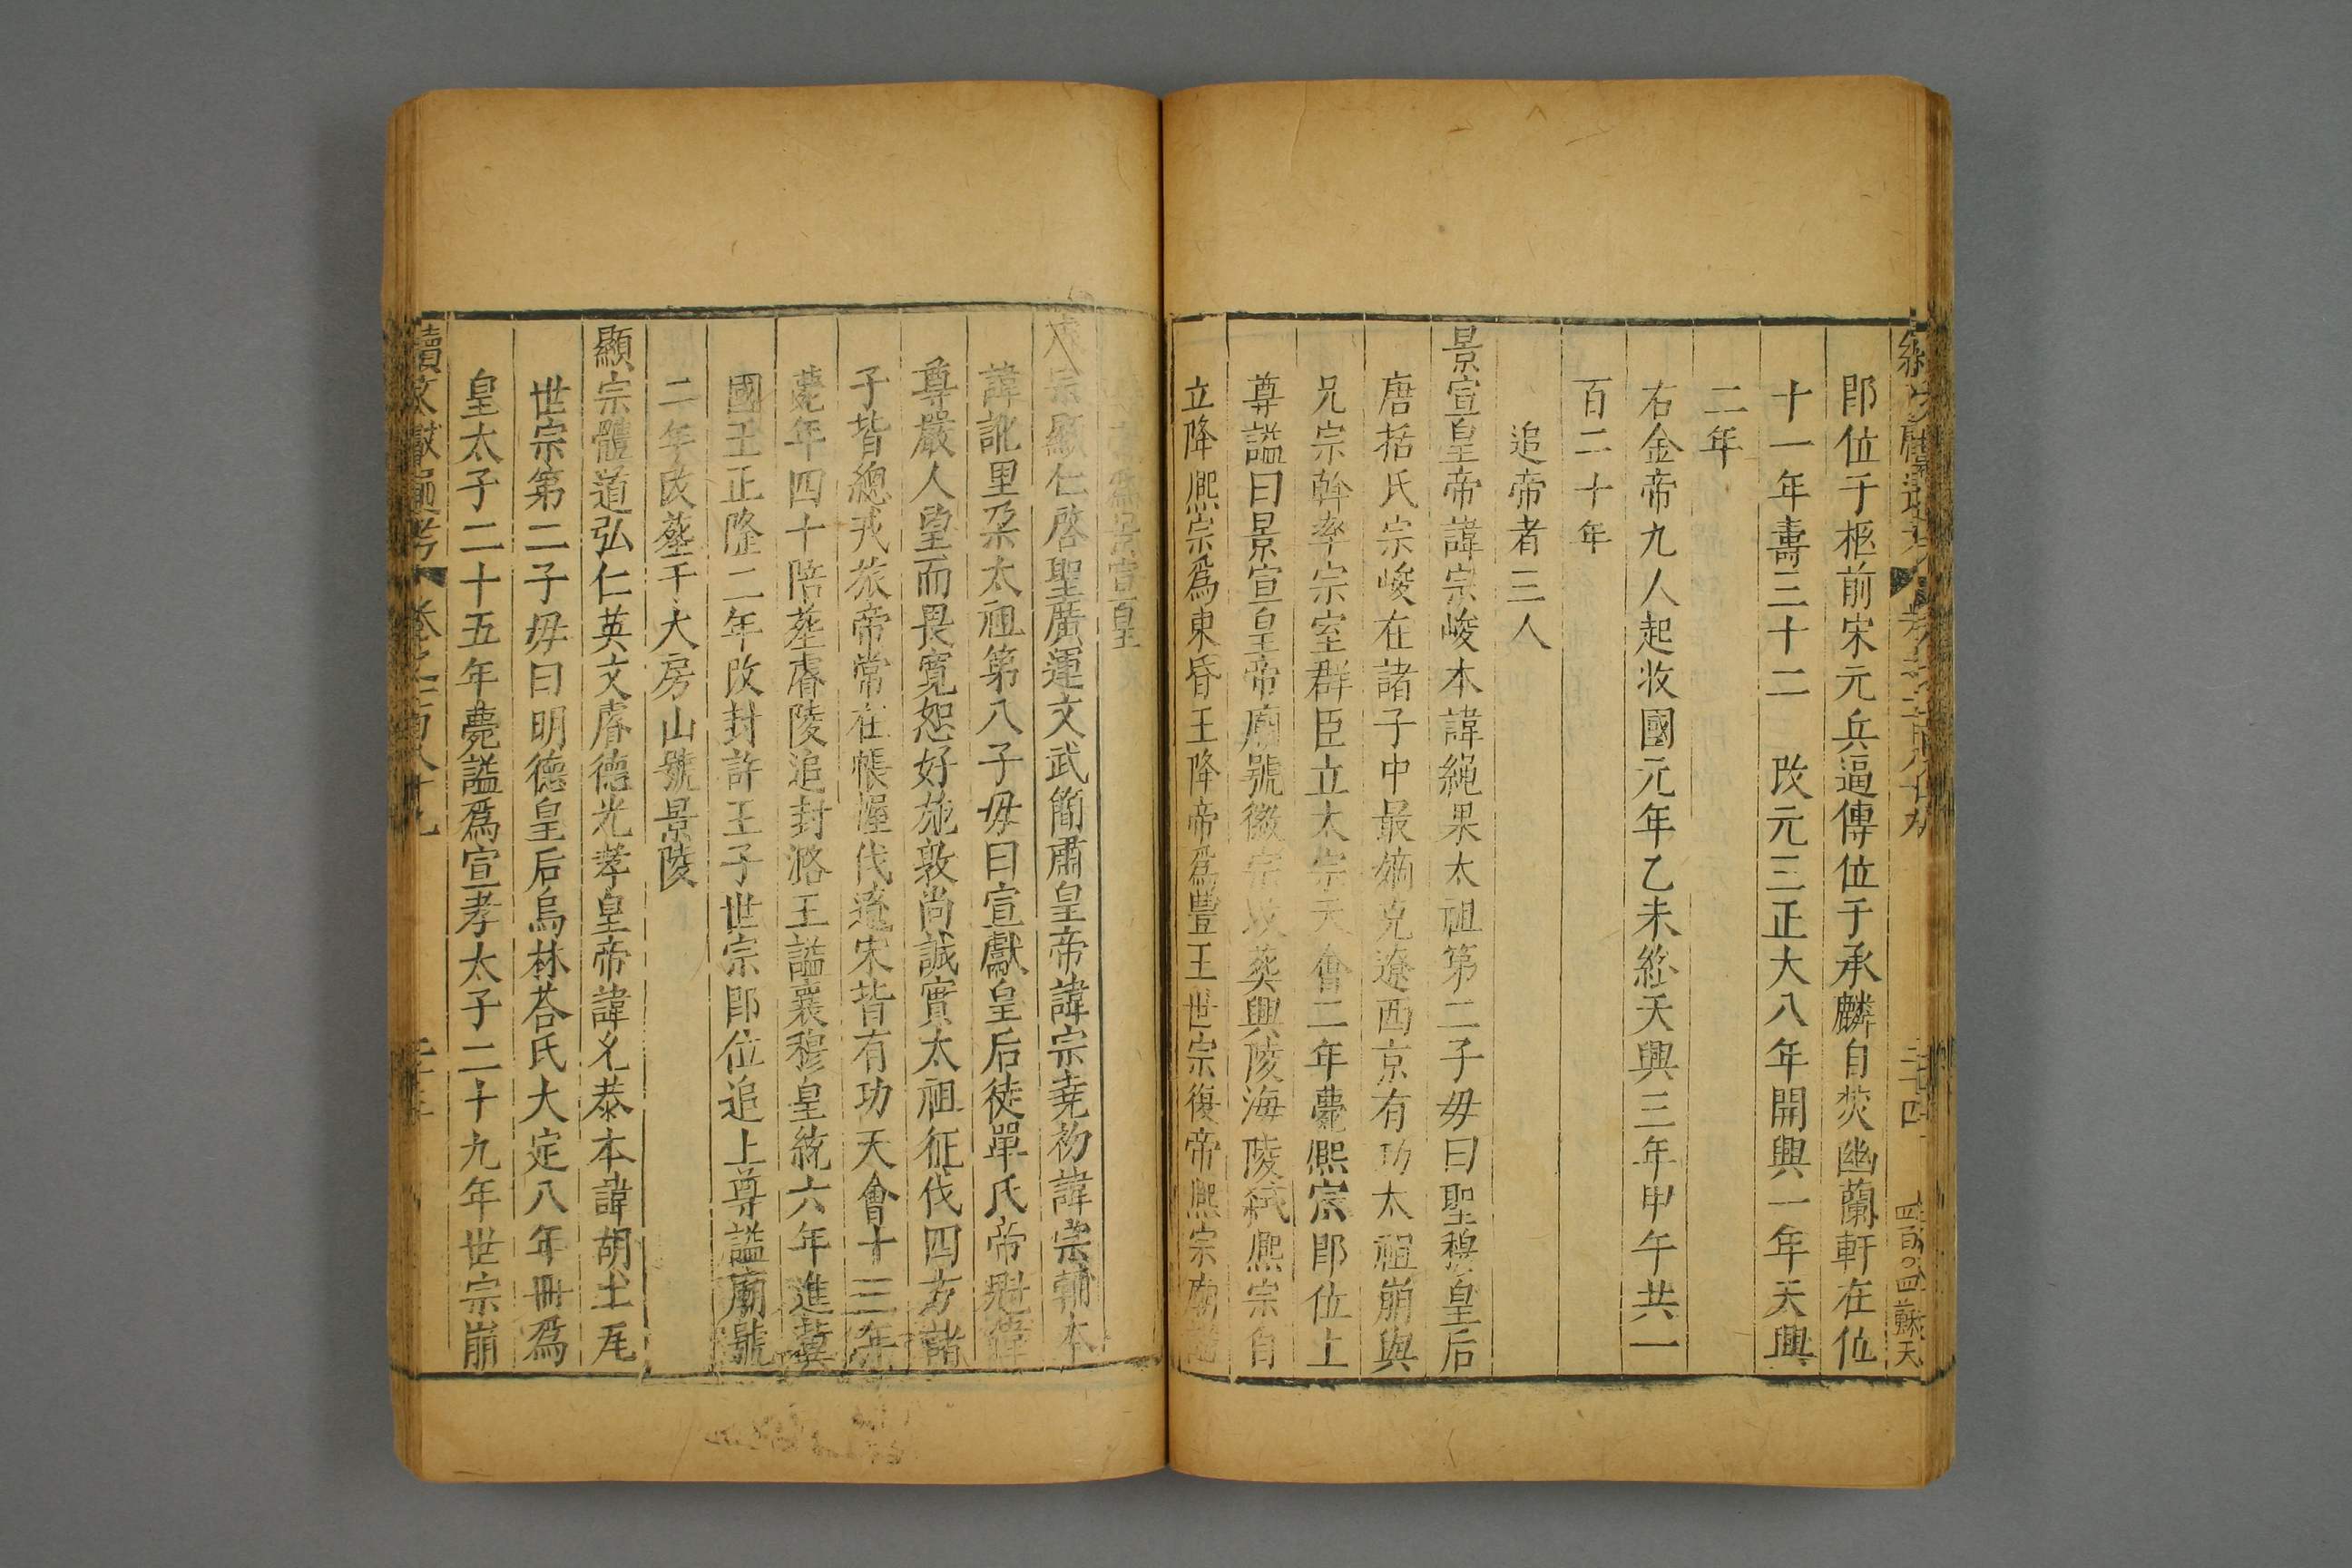 即位于柩前宋元兵逼傳位于承麟自焚幽蘭軒在位
十一年壽三十二 改元三正大八年開興一年天興
二年
右金帝九人起收國元年乙未終天興三年甲午共一
百二十年
追帝者三人
景宣皇帝諱宗峻本諱繩果太祖第二子毋曰聖穆皇后
唐括氏宗峻在諸子中最嫡克遼西京有功太祖崩與
兄宗幹率宗室群臣立太宗天會二年薨熙宗即位上
尊謚曰景宣皇帝廟號徽宗改葬興陵海陵弒熙宗自
立降熙宗爲東昏王降帝爲豐王世宗復帝熙宗廟謚
爲景宣皇
宗顯仁啓聖廣運文武簡肅皇帝諱宗堯初諱宗輔本
諱訛里朶太祖第八子毋曰宣獻皇后徒單氏帝魁偉
尊嚴人望而畏寬恕好施敦尚誠實太祖征伐四方諸
子皆總戎旅帝常在帳幄伐遼宋皆有功天會十三年
薨年四十陪塟睿陵追封潞王謚襄穆皇統六年進冀
國王正隆二年改封許王子世宗即位追上尊謚廟號
二年改塟于大房山號景陵
顯宗體道弘仁英文睿德光孝皇帝諱允恭本諱胡土瓦
世宗第二子毋曰明德皇后烏林荅氏大定八年冊爲
皇太子二十五年薨謚爲宣孝太子二十九年世宗崩
續文獻通考 卷之一百八十九